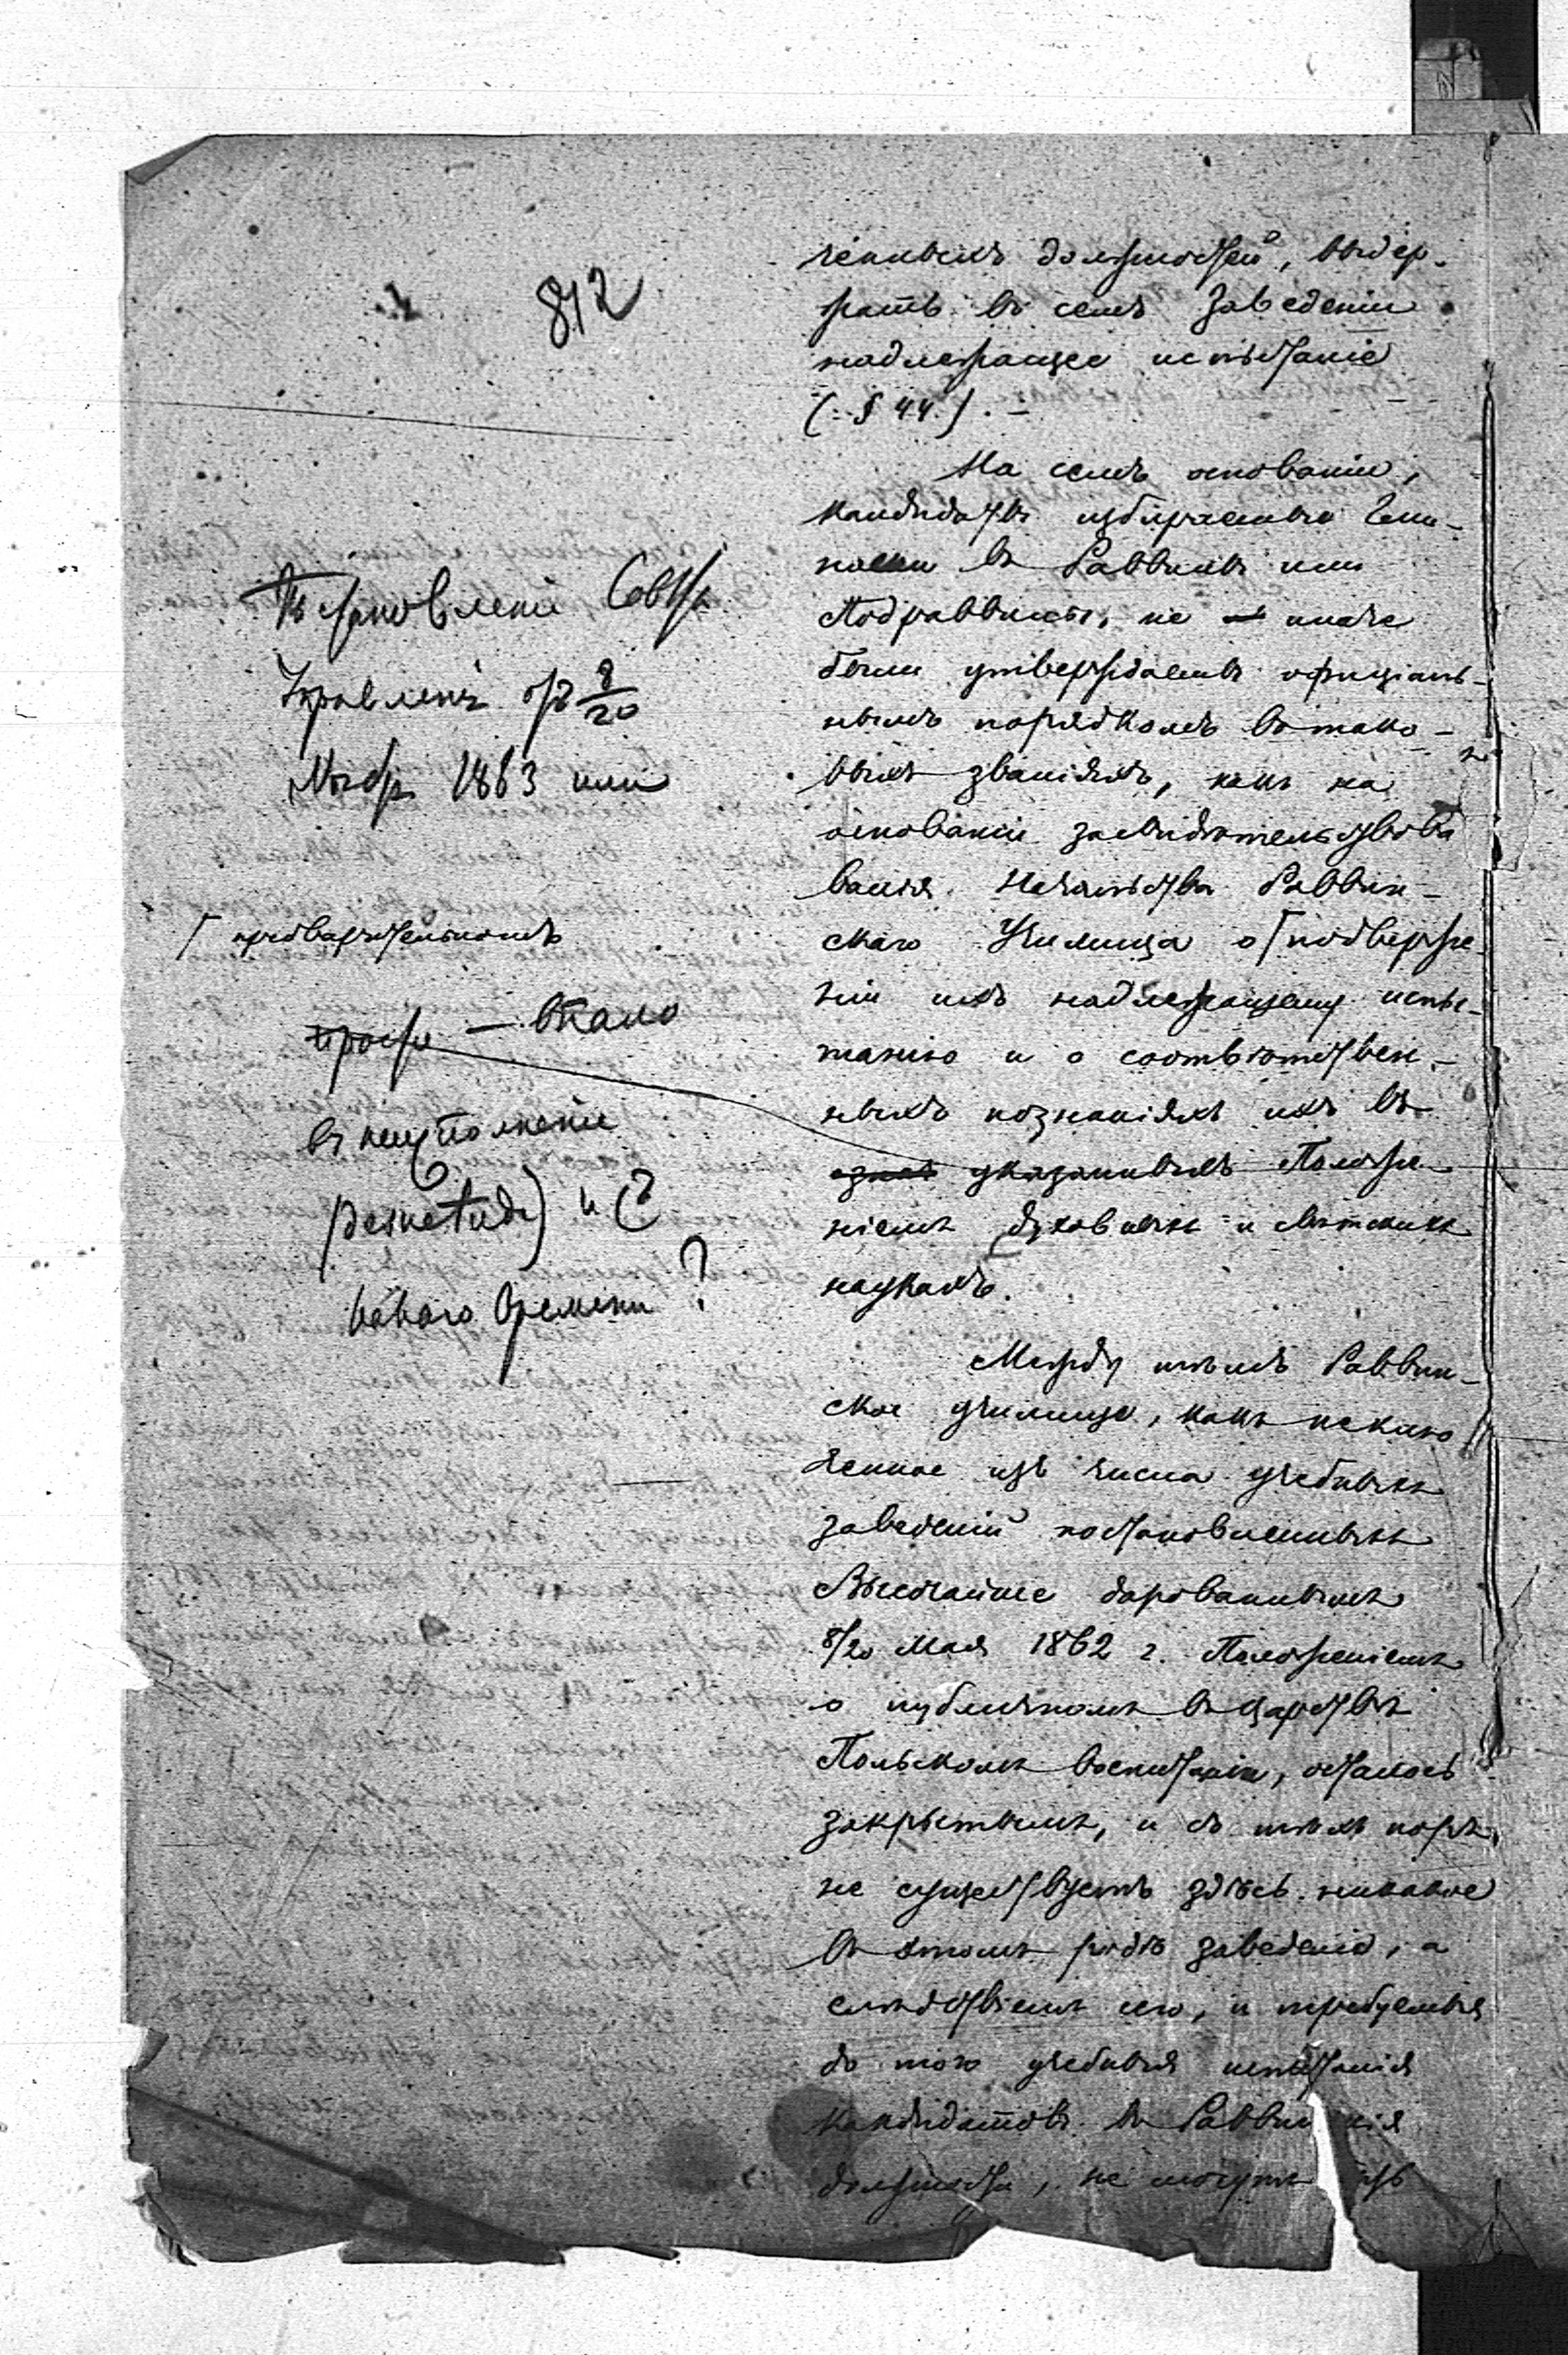 812
ченныхъ должностей, выдер-
жать въ семъ Заведеніи
надлежащее испытаніе
(: § 44.) . –
На семъ основаніи,
кандидаты избираемые Гми-
нами въ Раввины или
Подраввины, не иначе
были утверждаемы офиціаль-
нымъ порядкомъ въ тако-
выхъ званіяхъ, какъ на
основаніи засвидѣтельствова
ванія Начальства Раввин-
скаго Училища о подверже-
ніи ихъ надлежащему испы-
танію и о соотвѣтствен-
ныхъ познаніяхъ ихъ въ
указанныхъ Положе-
ніемъ духовныхъ и свѣтскихъ
наукахъ.
Между тѣмъ Раввин-
ское училище, какъ исклю
ченное изъ числа учебныхъ
заведеній постановленныхъ
Высочайше дарованнымъ
8/20 Мая 1862 г. Положеніемъ
о публичномъ въ Царствѣ
Польскомъ воспитаніи, осталось
закрытымъ, и съ тѣхъ поръ,
не существуетъ здѣсь никакое
въ этомъ родѣ заведеніе, а
слѣдствіемъ сего, и требуемыя
до того учебныя испытанія
кандидатовъ въ Раввинскія
должности, не могутъ
Постановленіе Совѣта
Управленія отъ 8/20
1863 или
предварительномъ
въ исполненіе
новаго времени ?